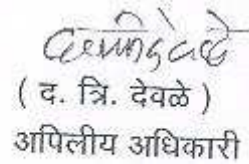 ( द. त्रि. देवळे )
अपिलीय अधिकारी